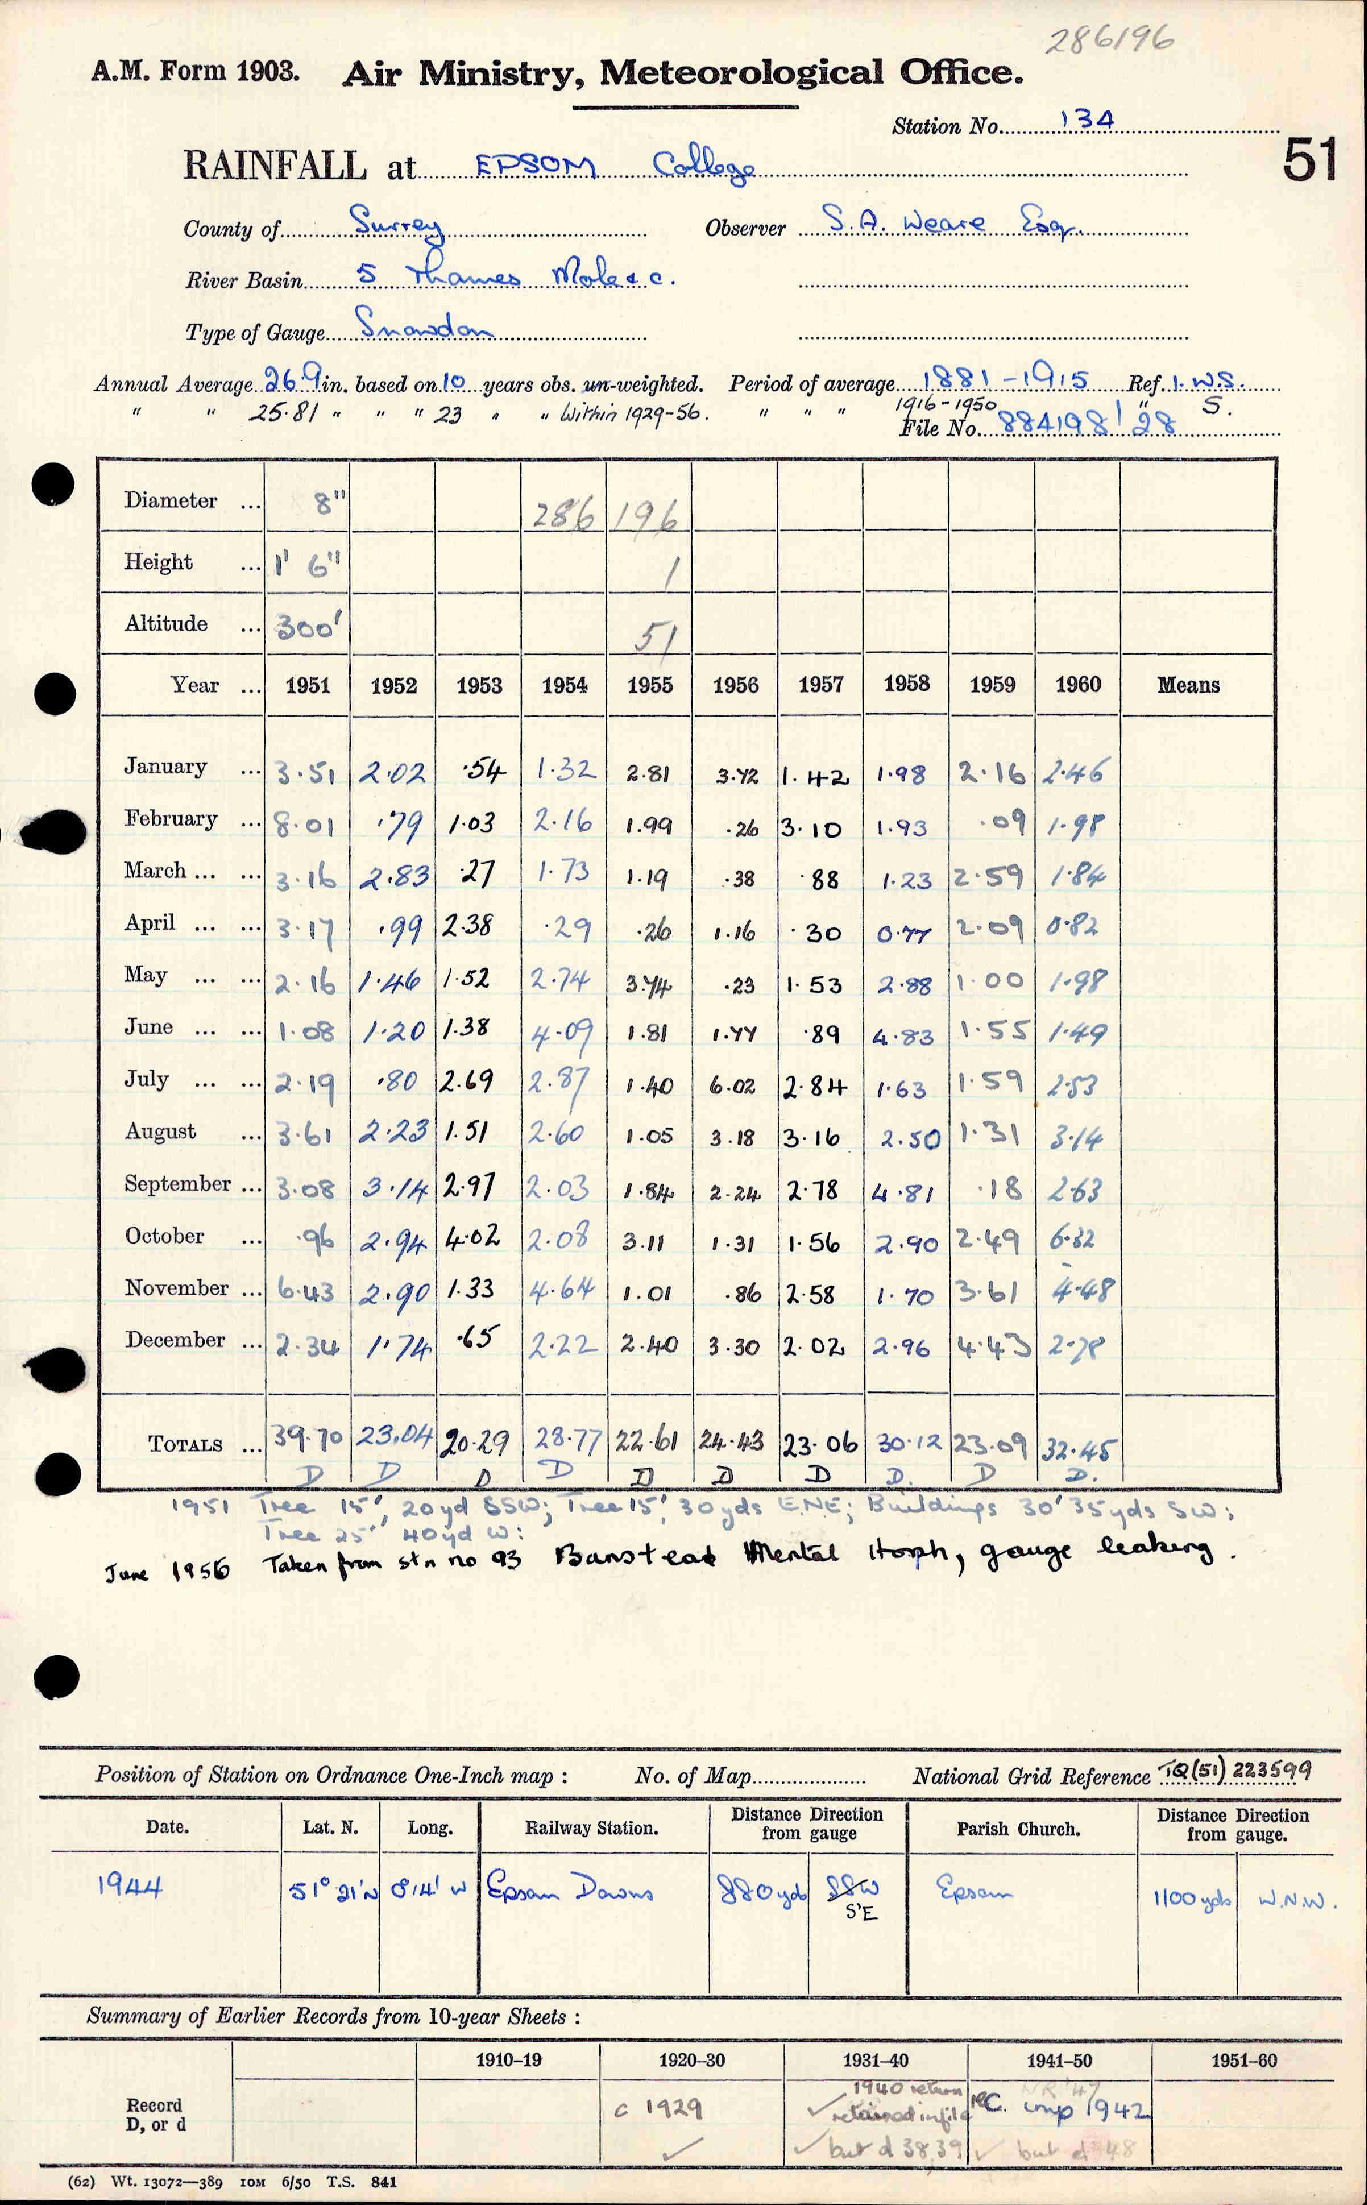 286196
A.M. Form 1903. Air Ministry, Meteorological Office.
Station No. 134
51
RAINFALL at EPSOM College
County of Surrey Observer S.A. Weare Esq.
River Basin 5 Thames Mole & c.
Type of Gauge Snowdon
Annual Average 26.9 in. based on 10 years obs. un-weighted. Period of average 1881-1915 Ref. I.W.S.
" " 25.81 " " " 23 " " Within 1929-56. " " " 1916-1950 " S.
File No. 884198/28
Diameter ... 8" 286 196
Height ... 1' 6" 1
Altitude ... 300' 51
Year ... 1951 1952 1953 1954 1955 1956 1957 1958 1959 1960 Means
January ... 3.51 2.02 .54 1.32 2.81 3.72 1.42 1.98 2.16 2.46
February ... 8.01 .79 1.03 2.16 1.99 .26 3.10 1.93 .09 1.98
March ... ... 3.16 2.83 .27 1.73 1.19 .38 .88 1.23 2.59 1.84
April ... ... 3.17 .99 2.38 .29 .26 1.16 .30 0.77 2.09 0.82
May ... ... 2.16 1.46 1.52 2.74 3.74 .23 1.53 2.88 1.00 1.98
June ... ... 1.08 1.20 1.38 4.09 1.81 1.77 .89 4.83 1.55 1.49
July ... ... 2.19 .80 2.69 2.87 1.40 6.02 2.84 1.63 1.59 2.53
August ... 3.61 2.23 1.51 2.60 1.05 3.18 3.16 2.50 1.31 3.14
September ... 3.08 3.14 2.97 2.03 1.84 2.24 2.78 4.81 .18 2.63
October ... .96 2.94 4.02 2.08 3.11 1.31 1.56 2.90 2.49 6.32
November ... 6.43 2.90 1.33 4.64 1.01 .86 2.58 1.70 3.61 4.48
December ... 2.34 1.74 .65 2.22 2.40 3.30 2.02 2.96 4.43 2.78
TOTALS ... 39.70 23.04 20.29 28.77 22.61 24.43 23.06 30.12 23.09 32.45
D D D D D D D D. D D.
1951 Tree 15', 20yd SSW; Tree 15', 30yds ENE; Buildings 30' 35yds SW;
Tree 25' 40yd W:
June 1956 Taken from stn no 93 Banstead Mental Hosp, gauge leaking.
Position of Station on Ordnance One-Inch map : No. of Map National Grid Reference TQ(51) 223599
Date. Lat. N. Long. Railway Station. Distance Direction from gauge Parish Church. Distance Direction from gauge.
1944 51° 21'N 0°14' W Epsom Downs 880yds SSW Epsom 1100yds W.N.W.
S'E
Summary of Earlier Records from 10-year Sheets :
1910–19 1920–30 1931–40 1941–50 1951–60
Record D, or d c 1929 1940 return retained in file NR '47 C. unp 1942
✓ ✓ but d 38,39 ✓ but d 48
(62) Wt. 13072—389 10M 6/50 T.S. 841